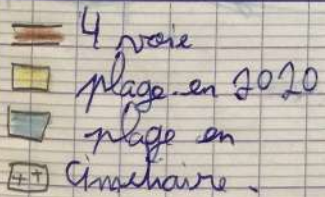 4 voie
plage en 2020
plage en
Cimetiaire.